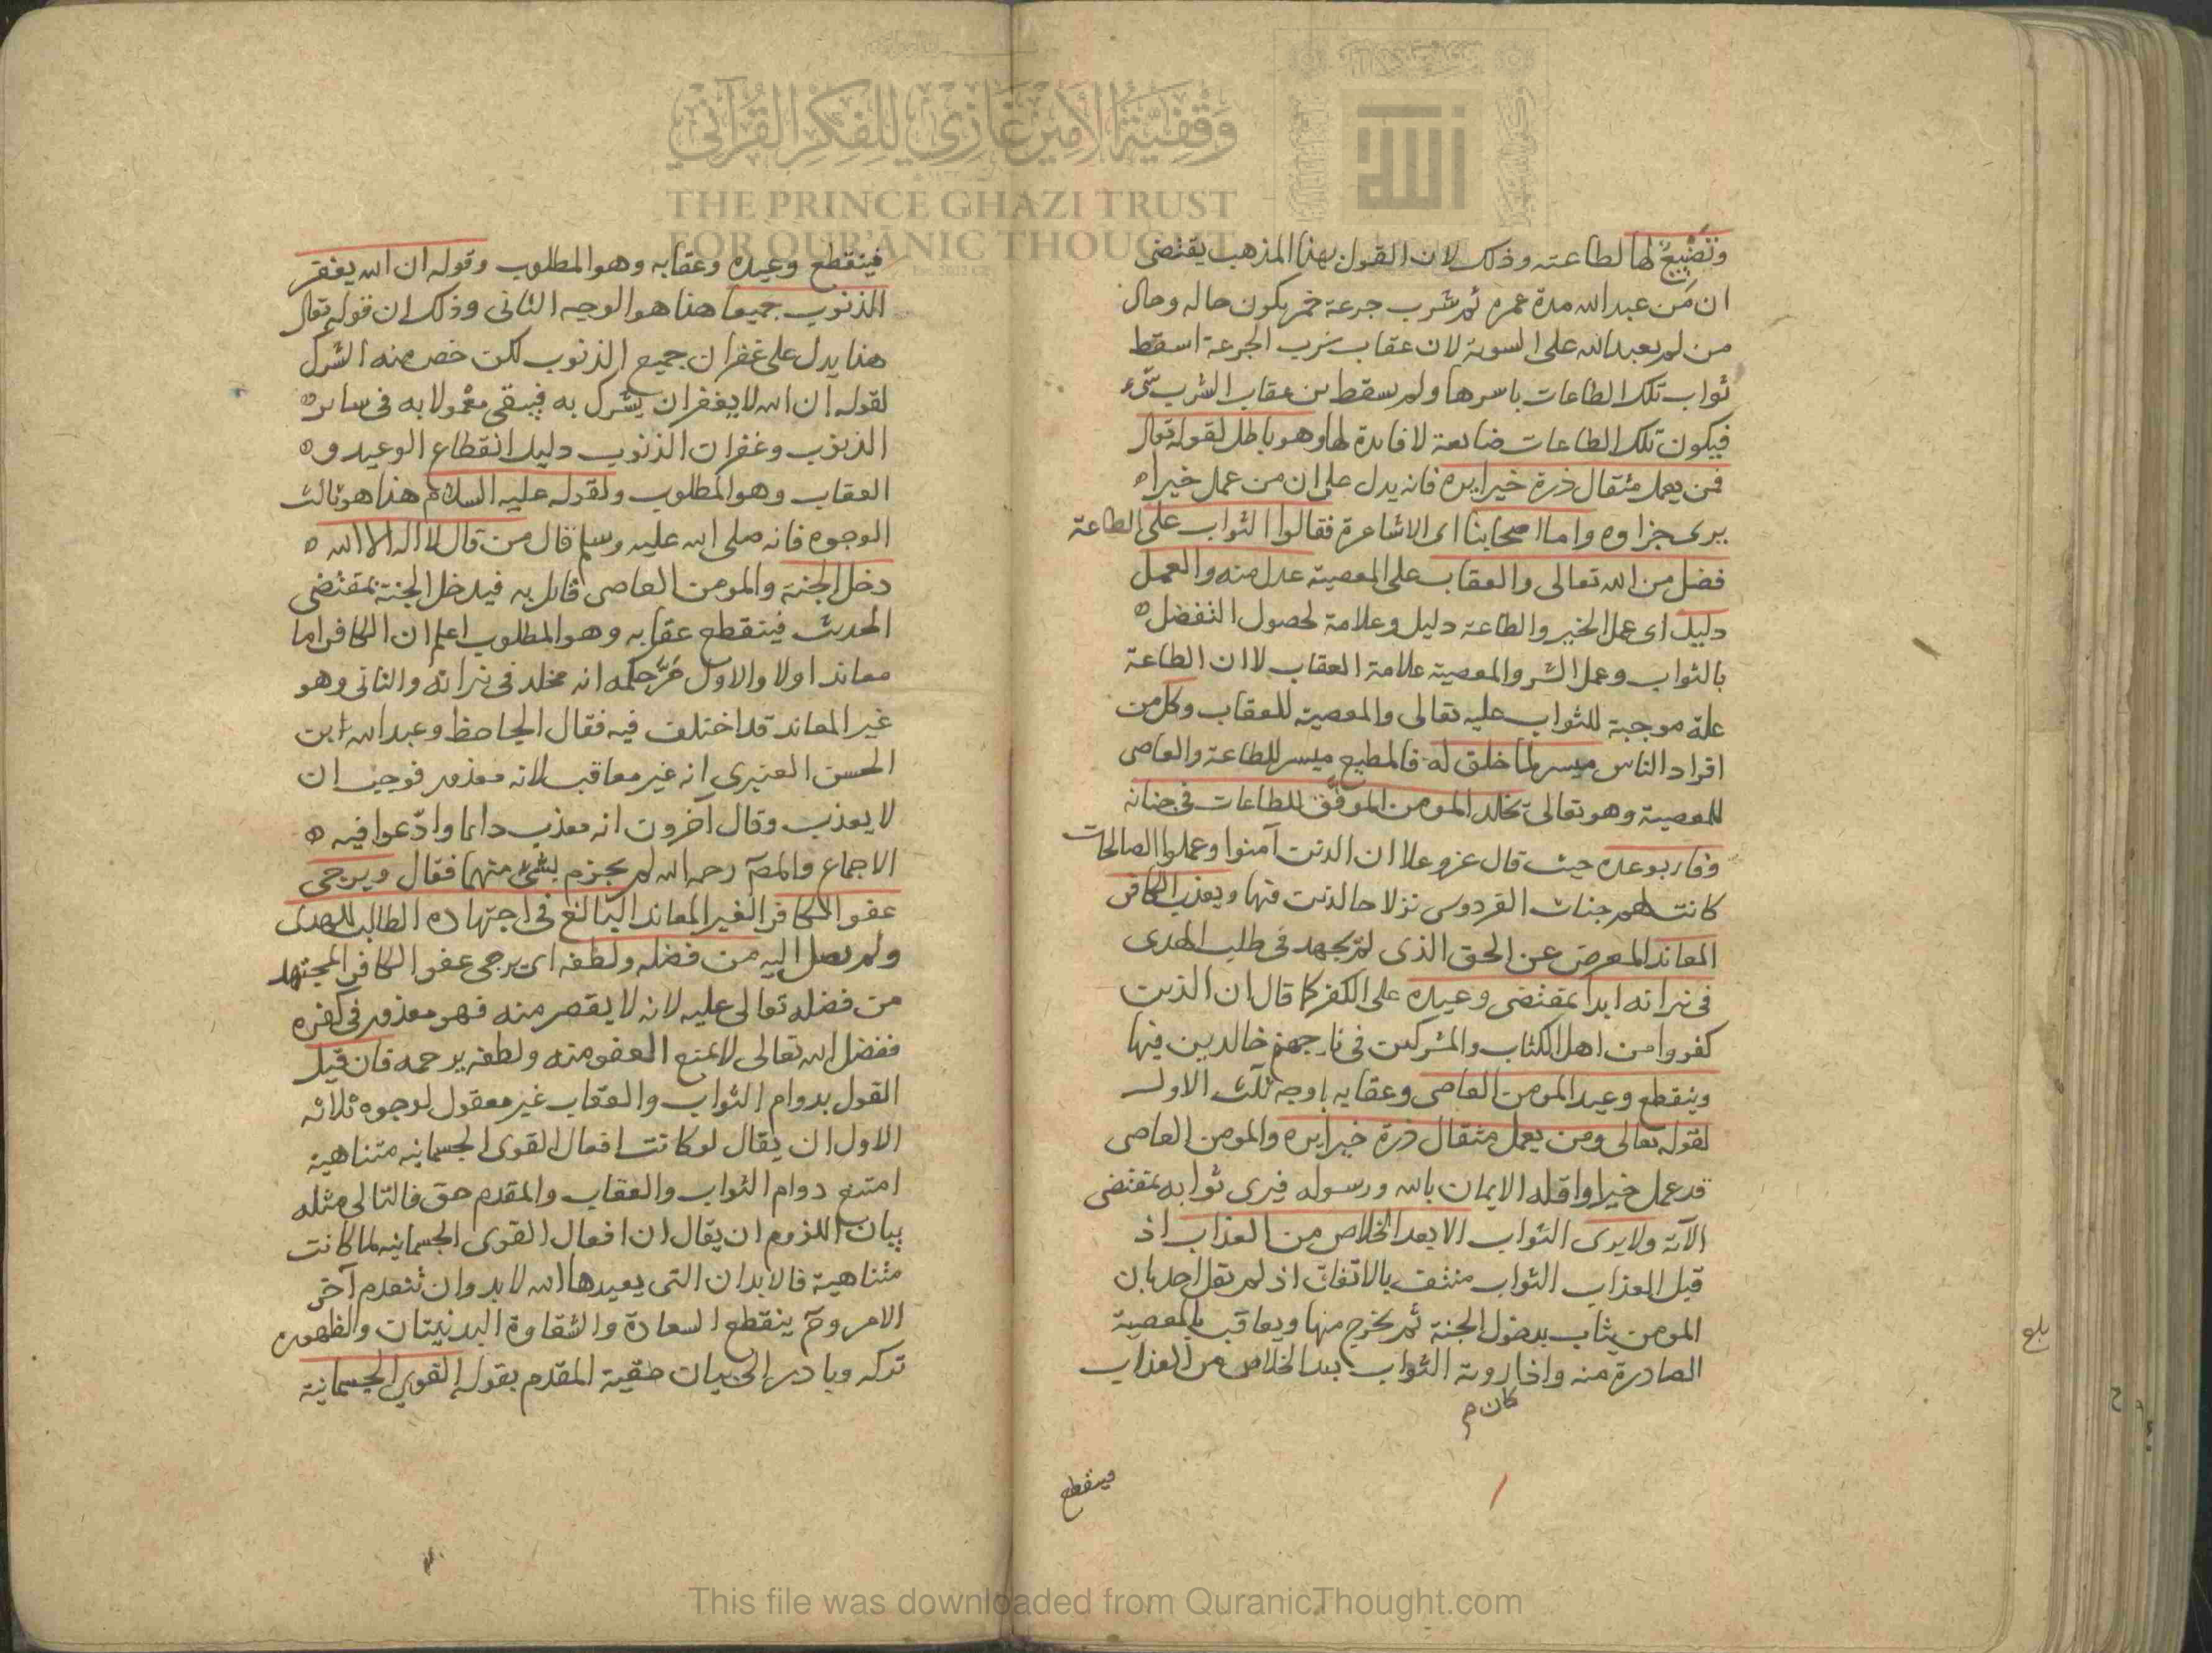 وتضييع لها لطاعته وذلك لان القول بهذا المذهب يقتضى
ان من عبد الله مدة عمره ثم شرب جرعة خمر يكون حاله وحال
من لم يعبد الله على السوية لان عقاب شرب الجرعة اسقط
ثواب تلك الطاعات باسرها ولم يسقط من عقاب الشرب شىء
فيكون تلك الطاعات ضايعة لا فايدة لها وهو باطل لقوله تعالى
فمن يعمل مثقال ذرة خيرا يره فانه يدل على ان من عمل خيرا
يرى جزاوه واما اصحابنا اى الاشاعرة فقالوا الثواب على الطاعة
فضل من الله تعالى والعقاب على المعصية عدل منه والعمل
دليل اى عمل الخير والطاعة دليل وعلامة لحصول التفضل
بالثواب وعمل الشر والمعصية علامة العقاب لا ان الطاعة
علة موجبة للثواب عليه تعالى والمعصية للعقاب وكل من
افراد الناس ميسر لما خلق له فالمطيع ميسر للطاعة والعاصى
للمعصية وهو تعالى يخلد المومن الموفق للطاعات فى جنانه
وفاء بوعده حيث قال عز وعلا ان الذين آمنوا وعملوا الصالحات
كانت لهم جنات الفردوس نزلا خالدين فيها ويعذب الكافر
المعاند المعرض عن الحق الذى لم يجهد فى طلب الهدى
فى نيرانه ابدا بمقتضى وعيده على الكفر كما قال ان الذين
كفروا من اهل الكتاب والمشركين فى نار جهنم خالدين فيها
وينقطع وعيد المومن العاصى وعقابه باوجه ثلث الاول
لقوله تعالى ومن يعمل مثقال ذرة خيرا يره والمومن العاصى
قد عمل خيرا واقله الايمان بالله ورسوله فيرى ثوابه بمقتضى
الآية ولا يرى الثواب الا بعد الخلاص من العذاب اذ
قبل العذاب الثواب منتف بالاتفاق اذ لم يقل احد بان
المومن يثاب بدخول الجنة ثم يخرج منها ويعاقب بالمعصية
الصادرة منه واذا روية الثواب بعد الخلاص من العذاب
كان م
فينقطع
بلغ
فينقطع وعيده وعقابه وهو المطلوب وقوله ان الله يغفر
الذنوب جميعا هذا هو الوجه الثانى وذلك ان قوله تعالى
هذا يدل على غفران جميع الذنوب لكن خص منه الشرك
لقوله ان الله لا يغفر ان يشرك به فيبقى معمولا به فى ساير
الذنوب وغفران الذنوب دليل انقطاع الوعيد و
العقاب وهو المطلوب ولقوله عليه السلام هذا هو ثالث
الوجوه فانه صلى الله عليه وسلم قال من قال لا اله الا الله
دخل الجنة والمومن العاصى قايل به فيدخل الجنة بمقتضى
الحديث فينقطع عقابه وهو المطلوب اعلم ان الكافر اما
معاند اولا والاول مر حكمه انه مخلد فى نيرانه والثانى وهو
غير المعاند قد اختلف فيه فقال الجاحظ وعبد الله ابن
الحسن العنبرى انه غير معاقب لانه معذور فوجب ان
لا يعذب وقال آخرون انه معذب دايما وادعوا فيه
الاجماع والمص رحمه الله لم يجزم بشئ منهما فقال ويرجى
عفو الكافر الغير المعاند البالغ فى اجتهاده الطالب للهدى
ولم يصل اليه من فضله ولطفه اى يرجى عفو الكافر المجتهد
من فضله تعالى عليه لانه لا يقصر منه فهو معذور فى كفره
ففضل الله تعالى لا يمنع العفو منه ولطفه يرحمه فان قيل
القول بدوام الثواب والعقاب غير معقول لوجوه ثلاثه
الاول ان يقال لو كانت افعال القوى الجسمانيه متناهية
امتنع دوام الثواب والعقاب والمقدم حق فالتالى مثله
بيان اللزوم ان يقال ان افعال القوى الجسمانيه لما كانت
متناهية فالابدان التى يعيدها الله لا بد وان تنعدم آخر
الامر وح ينقطع السعادة والشقاوة البدنيتان ولظهوره
تركه وبادر الى بيان حقية المقدم بقوله القوى الجسمانية
وقفية الأمير غازي للفكر القرآني
THE PRINCE GHAZI TRUST
FOR QUR'ĀNIC THOUGHT
This file was downloaded from QuranicThought.com